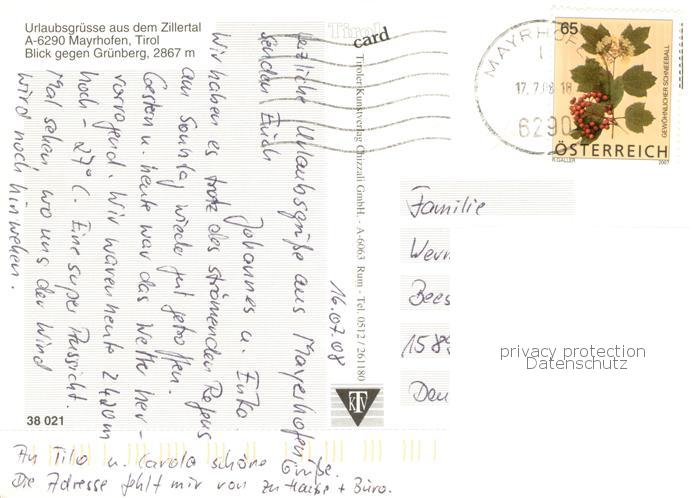 Urlaubsgrüsse aus dem Zillertal
A-6290 Mayrhofen, Tirol
Blick gegen Grünberg, 2867 m
Tirol
card
Tiroler Kunstverlag Chizzali GmbH. - A-6063 Rum - Tel. 0512/261180
KTV
38 021
16.07.08
Herzliche Urlaubsgrüße aus Mayerhofen
senden Euch
Johannes u. Enko
Wir haben es trotz des strömenden Regens
am Sonntag wieder gut getroffen.
Gestern u. heute war das Wetter her-
vorragend. Wir waren heute 2420m
hoch - 27°C. Eine super Aussicht.
Mal sehen wo uns der Wind
wird noch hinwehen.
An Tilo u. Carola schöne Grüße.
Die Adresse fehlt mir von zu Hause + Büro.
MAYRHOF
17.7.08 18
6290
65
GEWÖHNLICHER SCHNEEBALL
ÖSTERREICH
R.GALLER 2007
Familie
Wern
Bees
1589
Deu
privacy protection
Datenschutz